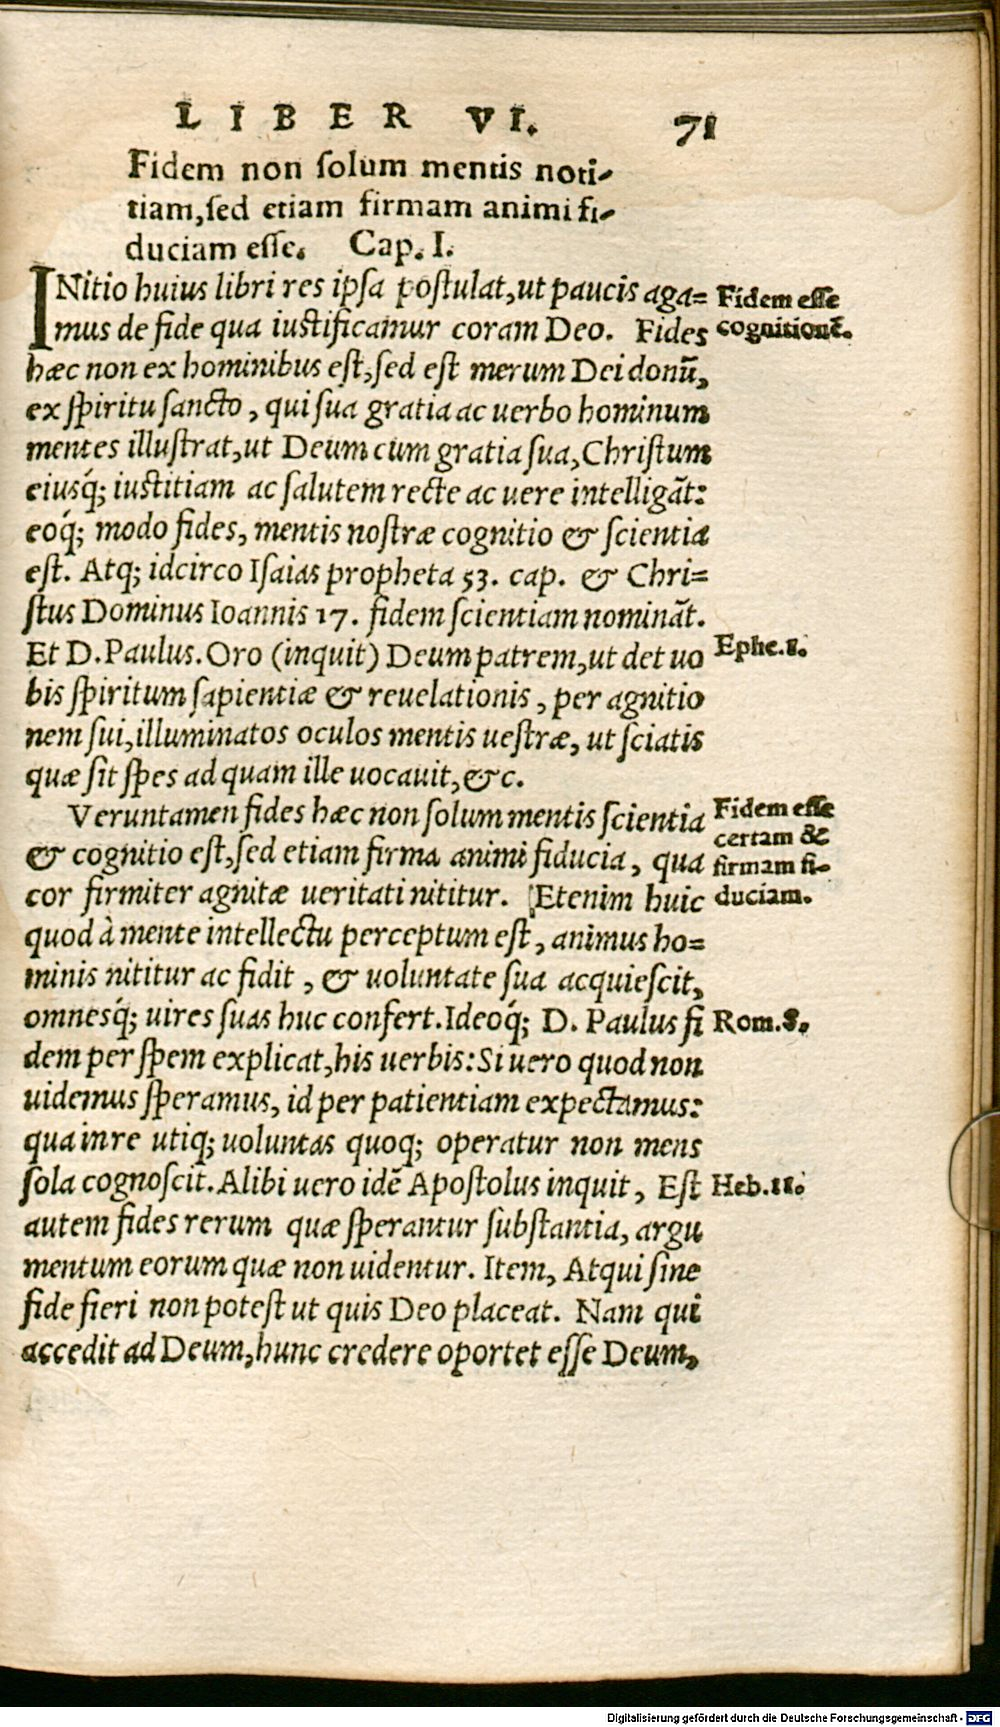 LIBER VI. 71
Fidem non ſolum mentis noti-
tiam, ſed etiam firmam animi fi-
duciam eſſe. Cap. I.
INitio huius libri res ipſa poſtulat, ut paucis aga=
mus de fide qua iuſtificamur coram Deo. Fides
hæc non ex hominibus eſt, ſed eſt merum Dei donũ,
ex ſpiritu ſancto, qui ſua gratia ac uerbo hominum
mentes illuſtrat, ut Deum cum gratia ſua, Chriſtum
eiusq́; iuſtitiam ac ſalutem recte ac uere intelligãt:
eoq́; modo fides, mentis noſtræ cognitio & ſcientia
eſt. Atq; idcirco Iſaias propheta 53. cap. & Chri=
ſtus Dominus Ioannis 17. fidem ſcientiam nominãt.
Et D. Paulus. Oro (inquit) Deum patrem, ut det uo
bis ſpiritum ſapientiæ & reuelationis, per agnitio
nem ſui, illuminatos oculos mentis ueſtræ, ut ſciatis
quæ ſit ſpes ad quam ille uocauit, &c.
Veruntamen fides hæc non ſolum mentis ſcientia
& cognitio eſt, ſed etiam firma animi fiducia, qua
cor firmiter agnitæ ueritati nititur. Etenim huic
quod à mente intellectu perceptum eſt, animus ho=
minis nititur ac fidit, & uoluntate ſua acquieſcit,
omnesq́; uires ſuas huc confert. Ideoq́; D. Paulus fi
dem per ſpem explicat, his uerbis: Si uero quod non
uidemus ſperamus, id per patientiam expectamus:
qua in re utiq; uoluntas quoq; operatur non mens
ſola cognoſcit. Alibi uero idẽ Apoſtolus inquit, Eſt
autem fides rerum quæ ſperantur ſubſtantia, argu
mentum eorum quæ non uidentur. Item, Atqui ſine
fide fieri non poteſt ut quis Deo placeat. Nam qui
accedit ad Deum, hunc credere oportet eſſe Deum,
Fidem eſſe
cognitionẽ.
Ephe.1.
Fidem eſſe
certam &
firmam fi-
duciam.
Rom.8.
Heb.11.
Digitalisierung gefördert durch die Deutsche Forschungsgemeinschaft - DFG